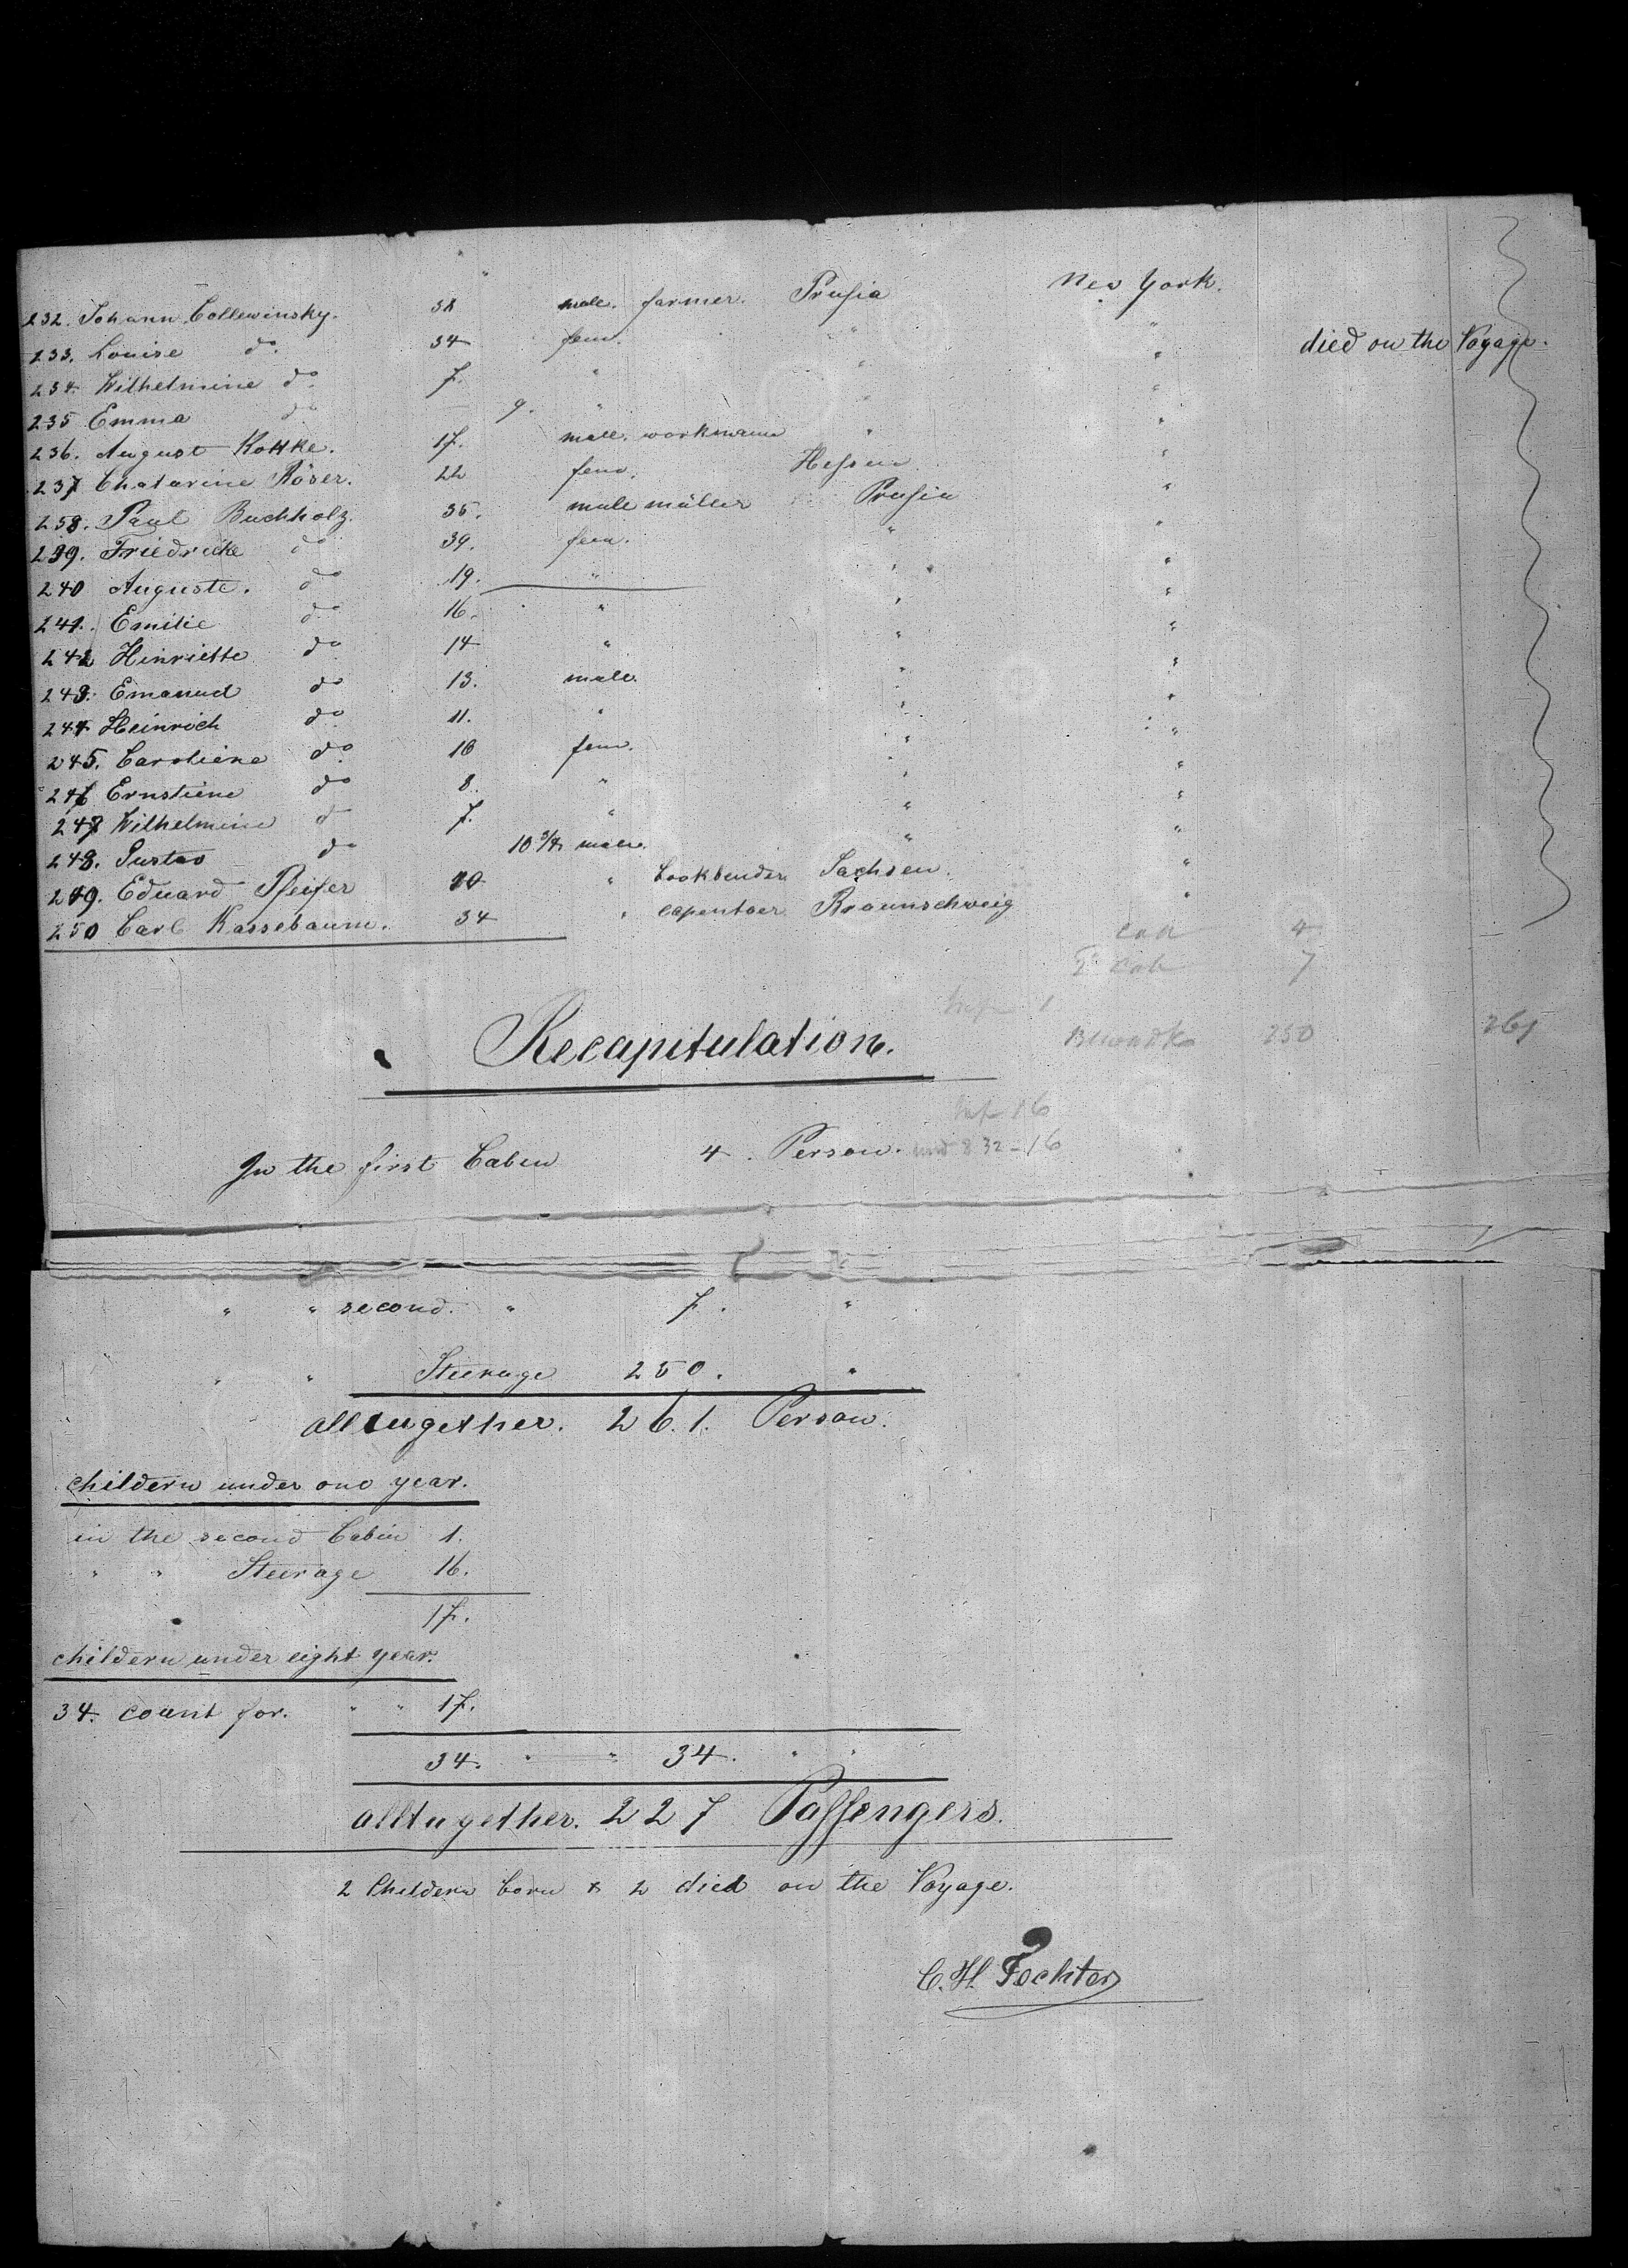 " "
232. Johann Collewinsky. 38 male. farmer. Prusia New York.
233. Louise do. 34 fem. " " died on the Voyage.
234. Wilhelmine do. 7. " " "
235 Emma do 9. " " "
236. August Kottke. 17. male. workmann " "
237 Chatarine Röser. 22 fem. Hessen "
238. Paul Buchholz. 35. male müller Prusia "
239. Friedricke do 39. fem. " "
240 Auguste. do 19. " " "
241. Emilie do 16. " " "
242 Hinriette do 14 " " "
243. Emanuel do 13. male. " "
244 Heinrich do 11. " " "
245. Caroliene do. 10 fem. " "
246 Ernstiene do 8. " " "
247 Wilhelmine d 7. " " "
248. Gustav do 10 3/4 male. " "
249. Eduard Pfeifer 20 " bookbender Sachsen. "
250 Carl Kassebaum. 34 " capentaer Braunschweig "
Cab 4
2 Cab 7
Inf 1
250 261
Recapitulation.
Inf 16
In the first Cabin 4. Person. und 8 32-16
" " second. " 7. "
" " Steerage 250. "
alltugether. 261. Person.
childern under one year.
in the second Cabin 1.
" " Steerage 16.
17.
childern under eight year.
34. count for. " " 17.
34. " " 34. " "
alltugether. 227 Passengers.
2 Childern born & 2 died on the Voyage.
C. H. Fechter